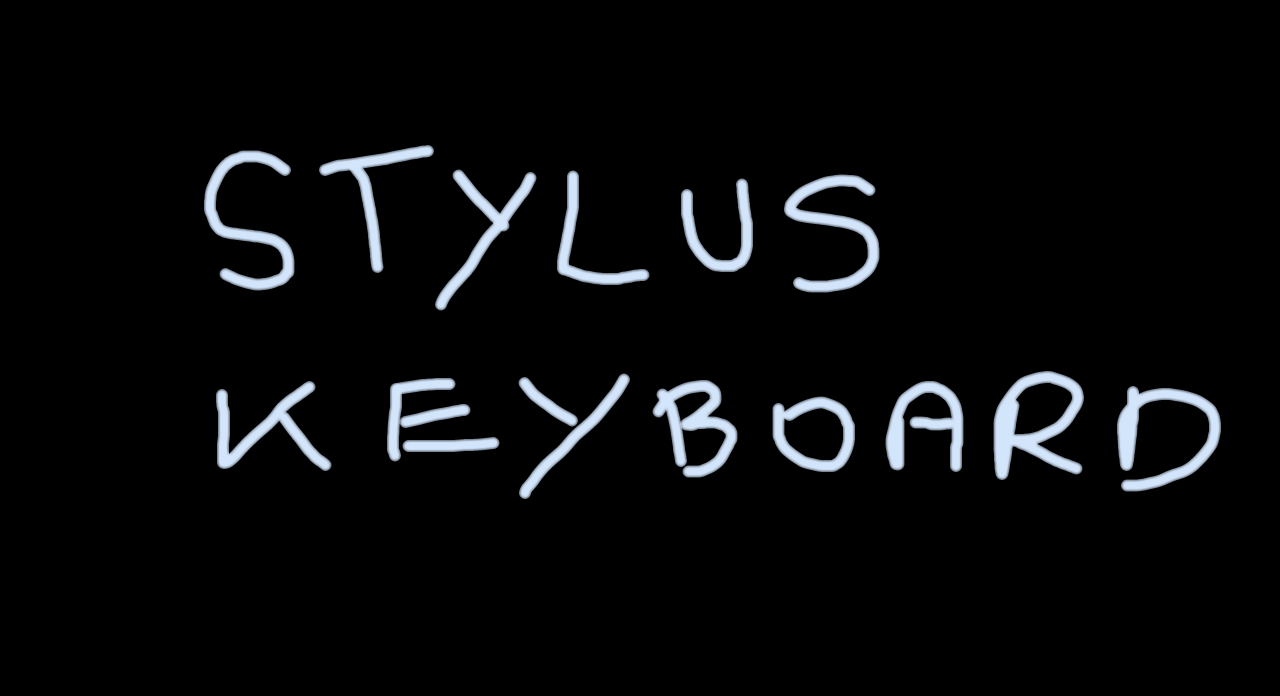 STYLUS
KEYBOARD